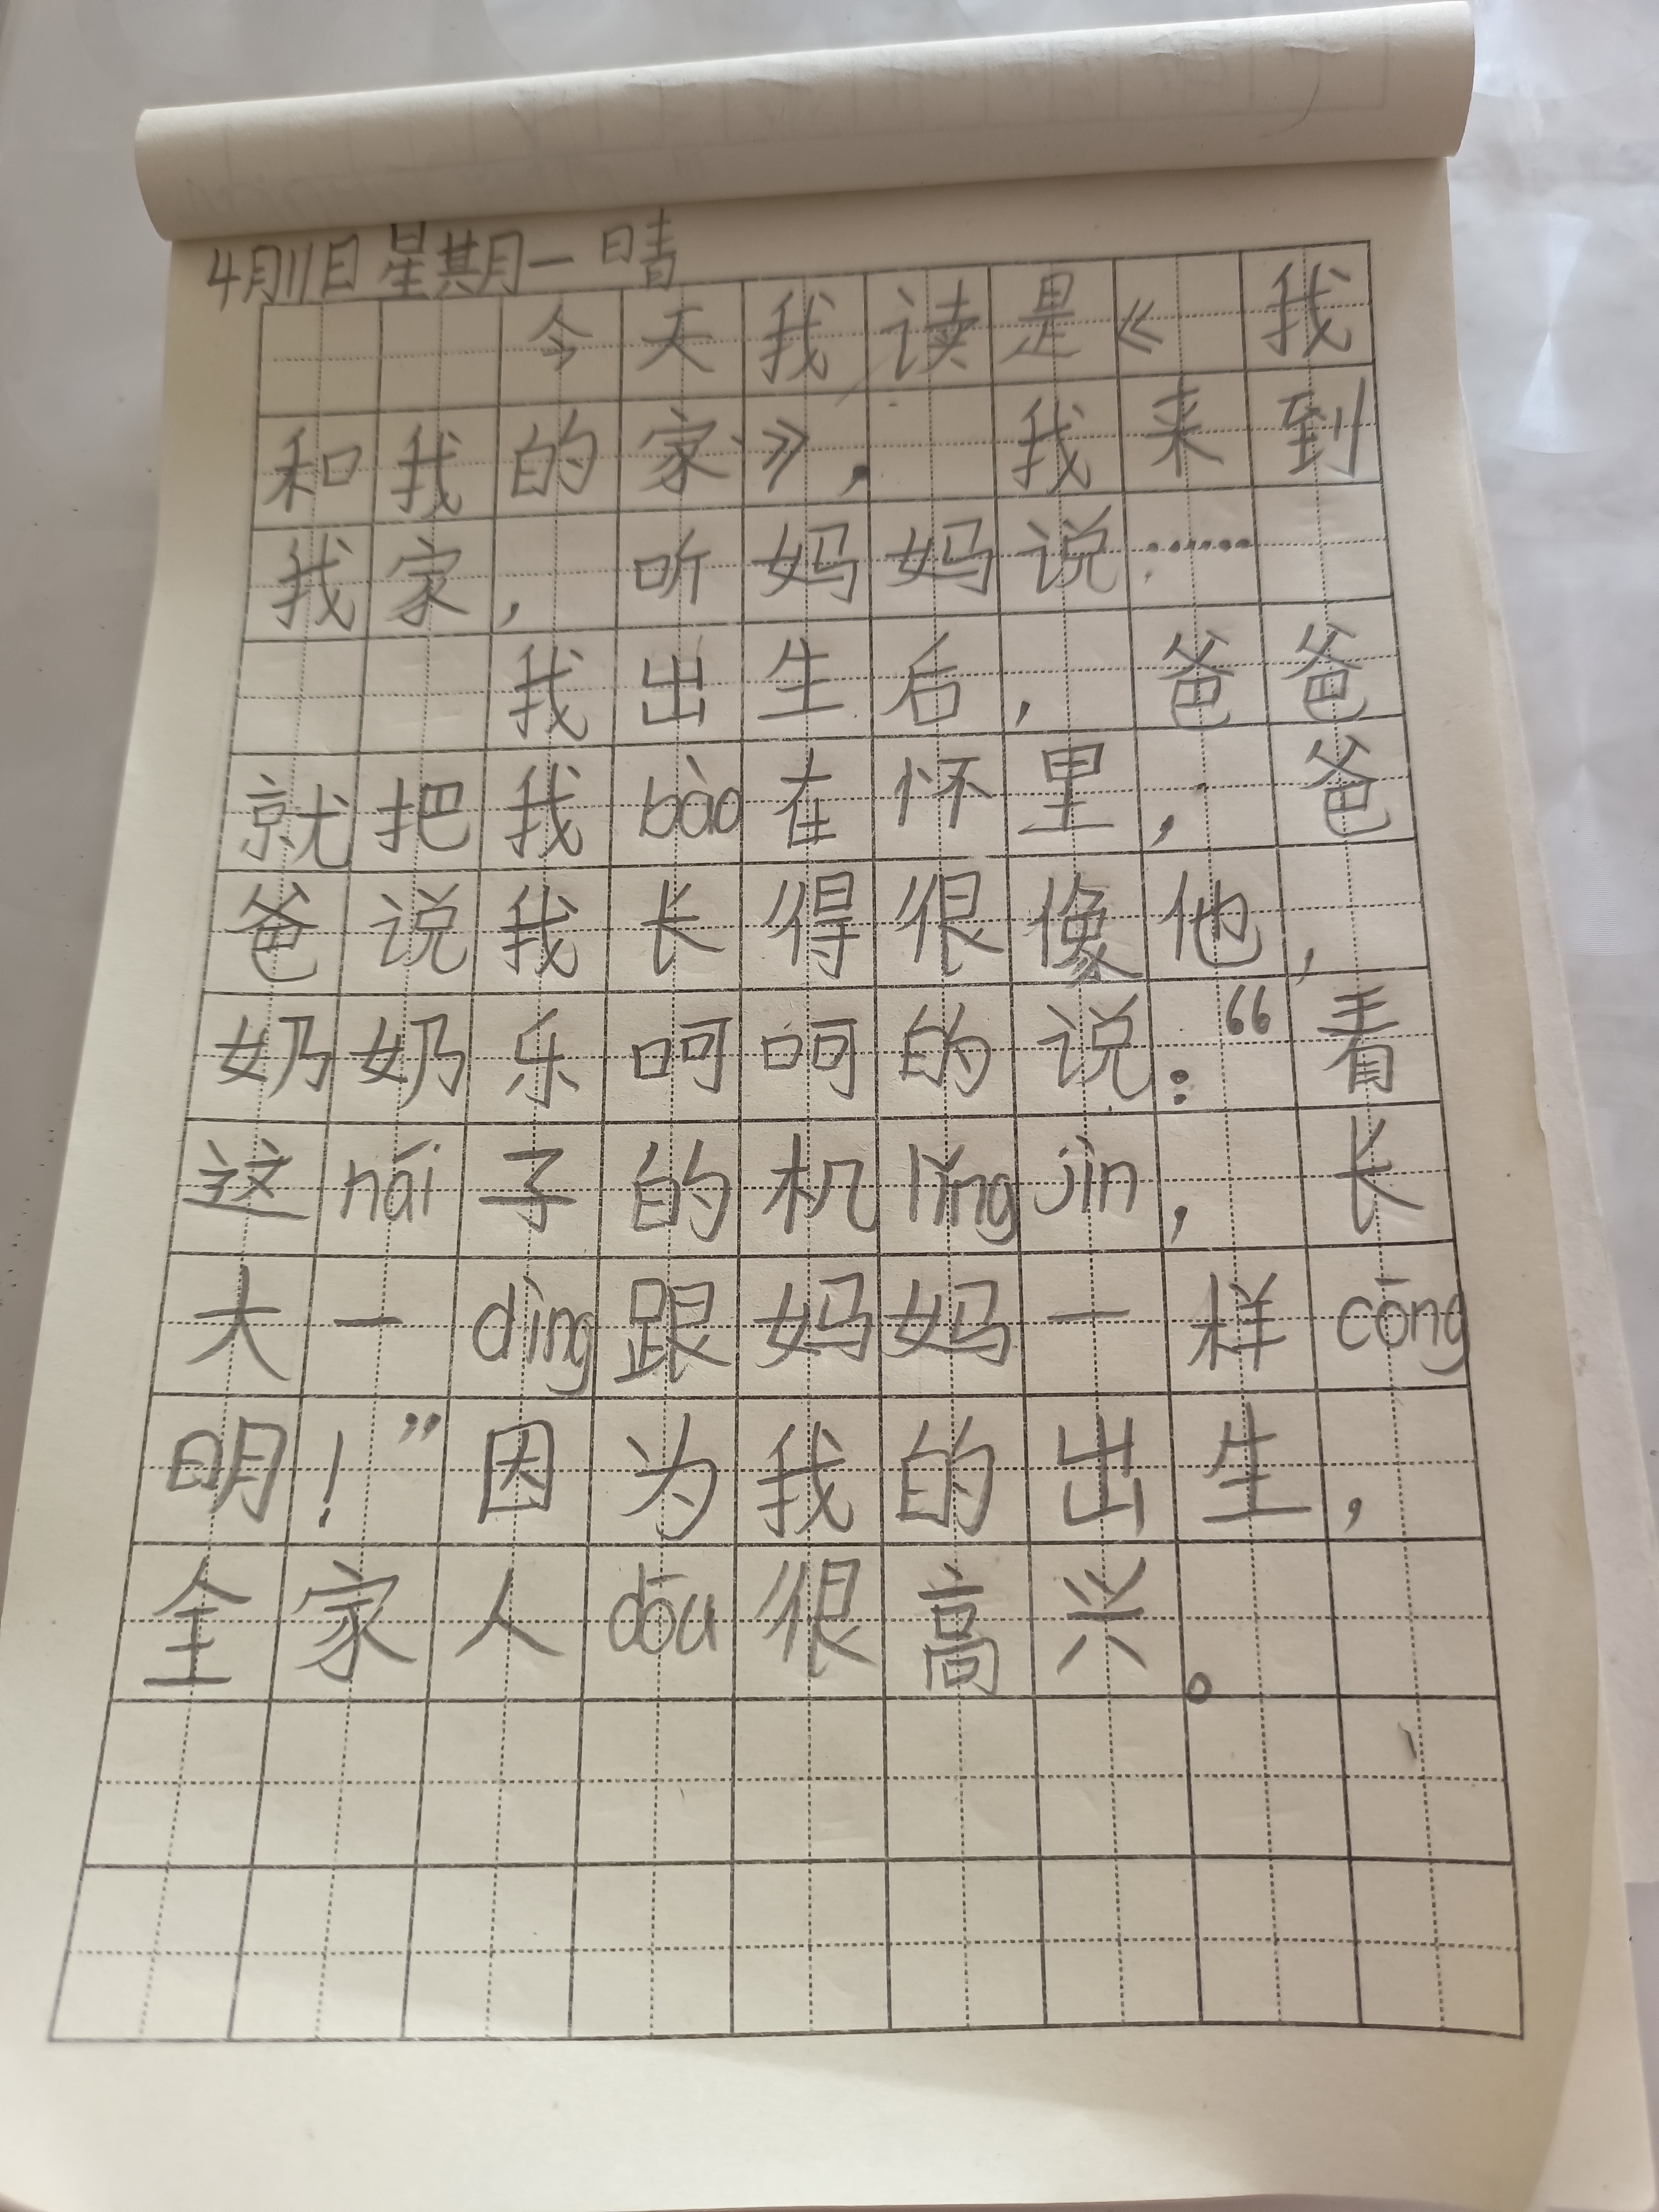 4月11日星期一 晴
今天我读是《我
和我的家》,我来到
我家,听妈妈说……
我出生后,爸爸
就把我bào在怀里,爸
爸说我长得很像他,
奶奶乐呵呵的说:“看
这nǎi子的机lǐng jìn,长
大一dìng跟妈妈一样cōng
明!”因为我的出生,
全家人dōu很高兴。